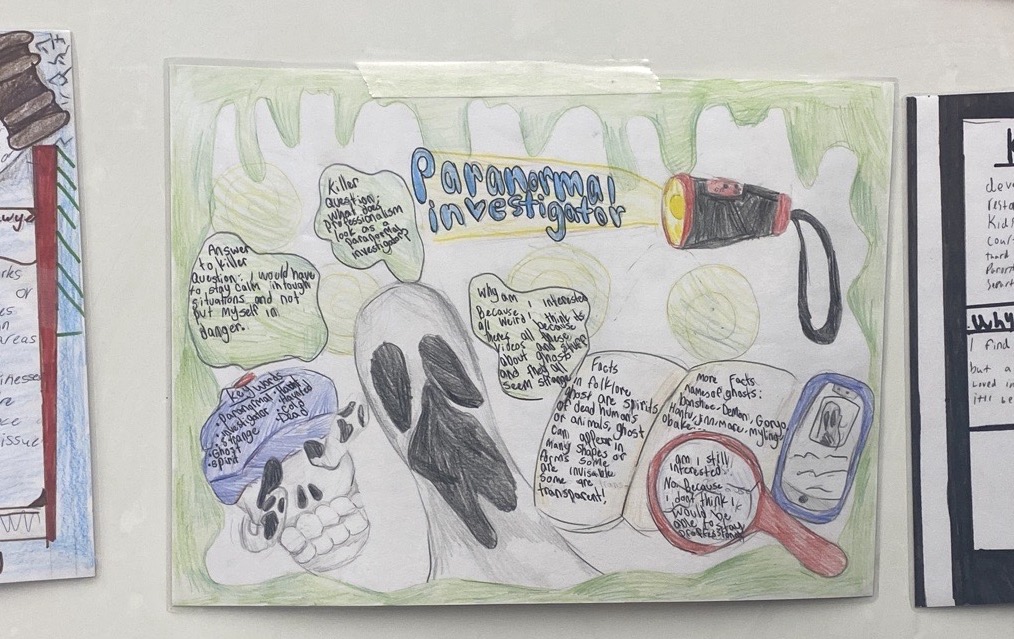 Paranormal
investigator
Killer
question:
What does
professionalism
look as a
paranormal
investigator?
Answer
to killer
Question: I would have
to stay calm in tough
situations and not
put myself in
danger.
Why am I interested
Because I think its
all weird!
theres all these
videos and stuff
about ghost
and they all
seem strange
Key words
Paranormal
investigator
Strange
Ghost
Spirit
Haunted
Cold
Dead
Facts
in folklore
ghost are spirits
of dead humans
or animals, ghost
can appear in
many shapes or
forms some
are invisable
some are
transparent!
More Facts
names of ghosts:
banshee, Demon, Goryo,
Hantu, jinn, mare, myling,
obake
am I still
interested
No, Because
I dont think I
would be
able to stay
professional
Why
I find
but a